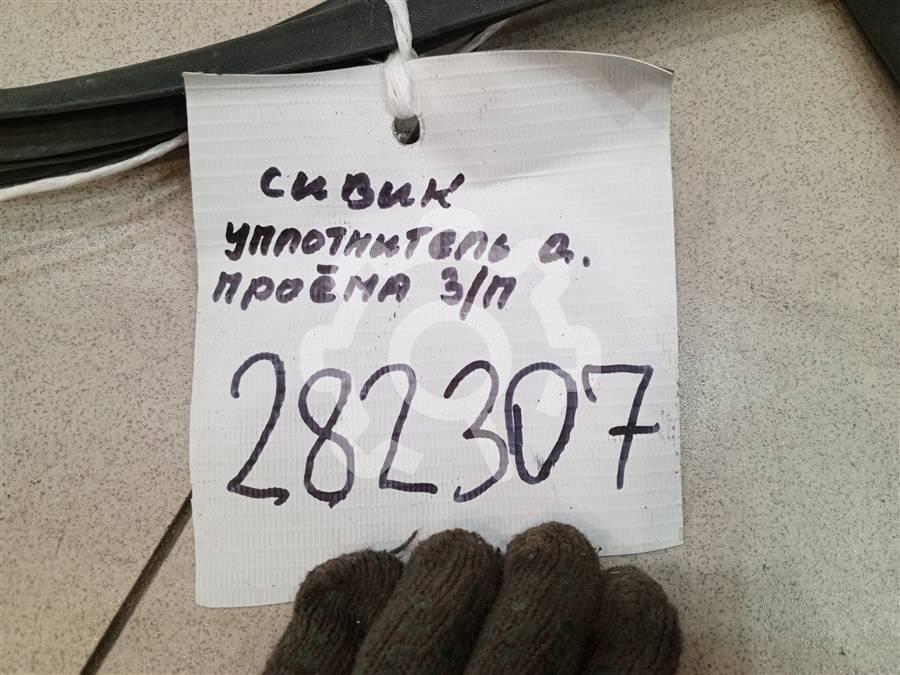 Сивик
уплотнитель д.
проёма З/П
282307